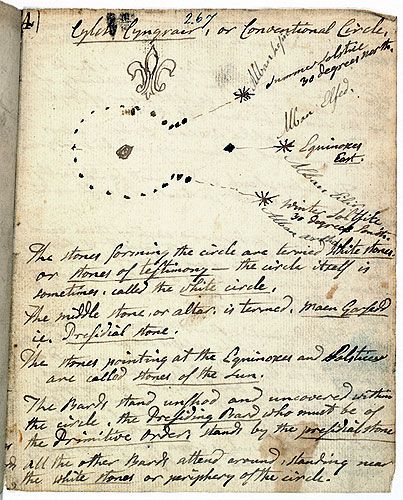 4
267
Cylch Cyngrair, or Conventional Circle,
Alban
Summer solstice
30 degrees north.
Alban Elfed.
Equinoxes
East.
Alban
Winter Solstice
30 degrees South.
Alban
The stones forming the circle are termed White stones
or stones of testimony — the circle itself is
sometimes called the white circle.
The middle stone, or altar, is termed, maen Gorsedd
ie. Presidial stone.
The stones pointing at the Equinoxes and Solstices
are called stones of the Sun.
The Bards stand unshod and uncovered within
the circle, the Presiding Bard who must be of
the Primitive Order, stands by the presidial stone
all the other Bards attend around, standing near
the white stones or periphery of the circle.